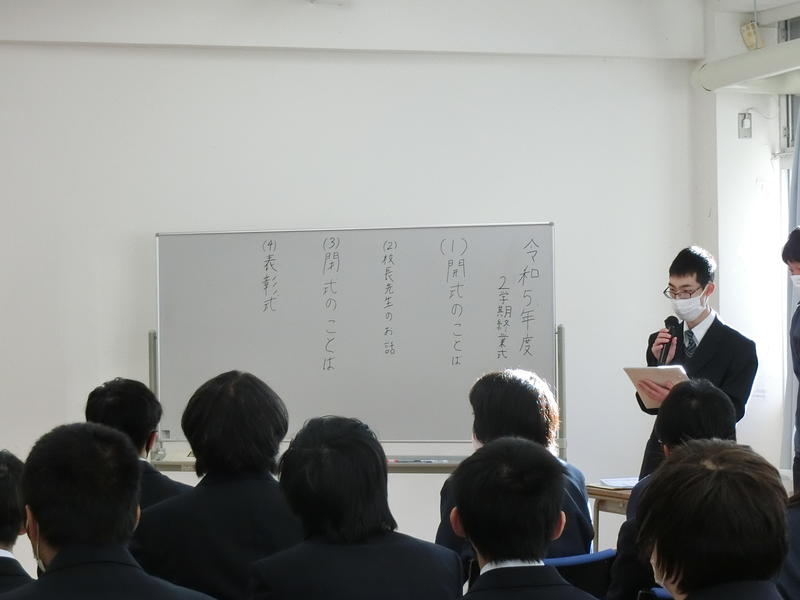 令和5年度
2学期終業式
(1)開式のことは
(2)校長先生のお話
(3)閉式のことは
(4)表彰式